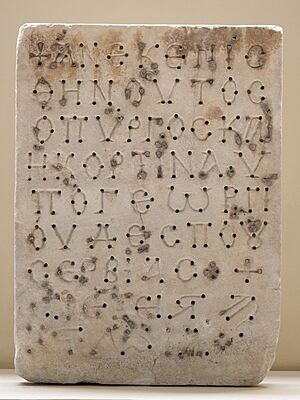 +ΑΝΕΚΕΝΙϹ
ΘΗΝΟΥΤΟϹ
ΟΠΥΡΓΟϹΚΙ
ΗΚΟΡΤΙΝΑΥ
ΠΟΓΕΩΡΓΙ
ΟΥΔΕϹΠΟȢ
ϹΕΡΒΙΑϹ +